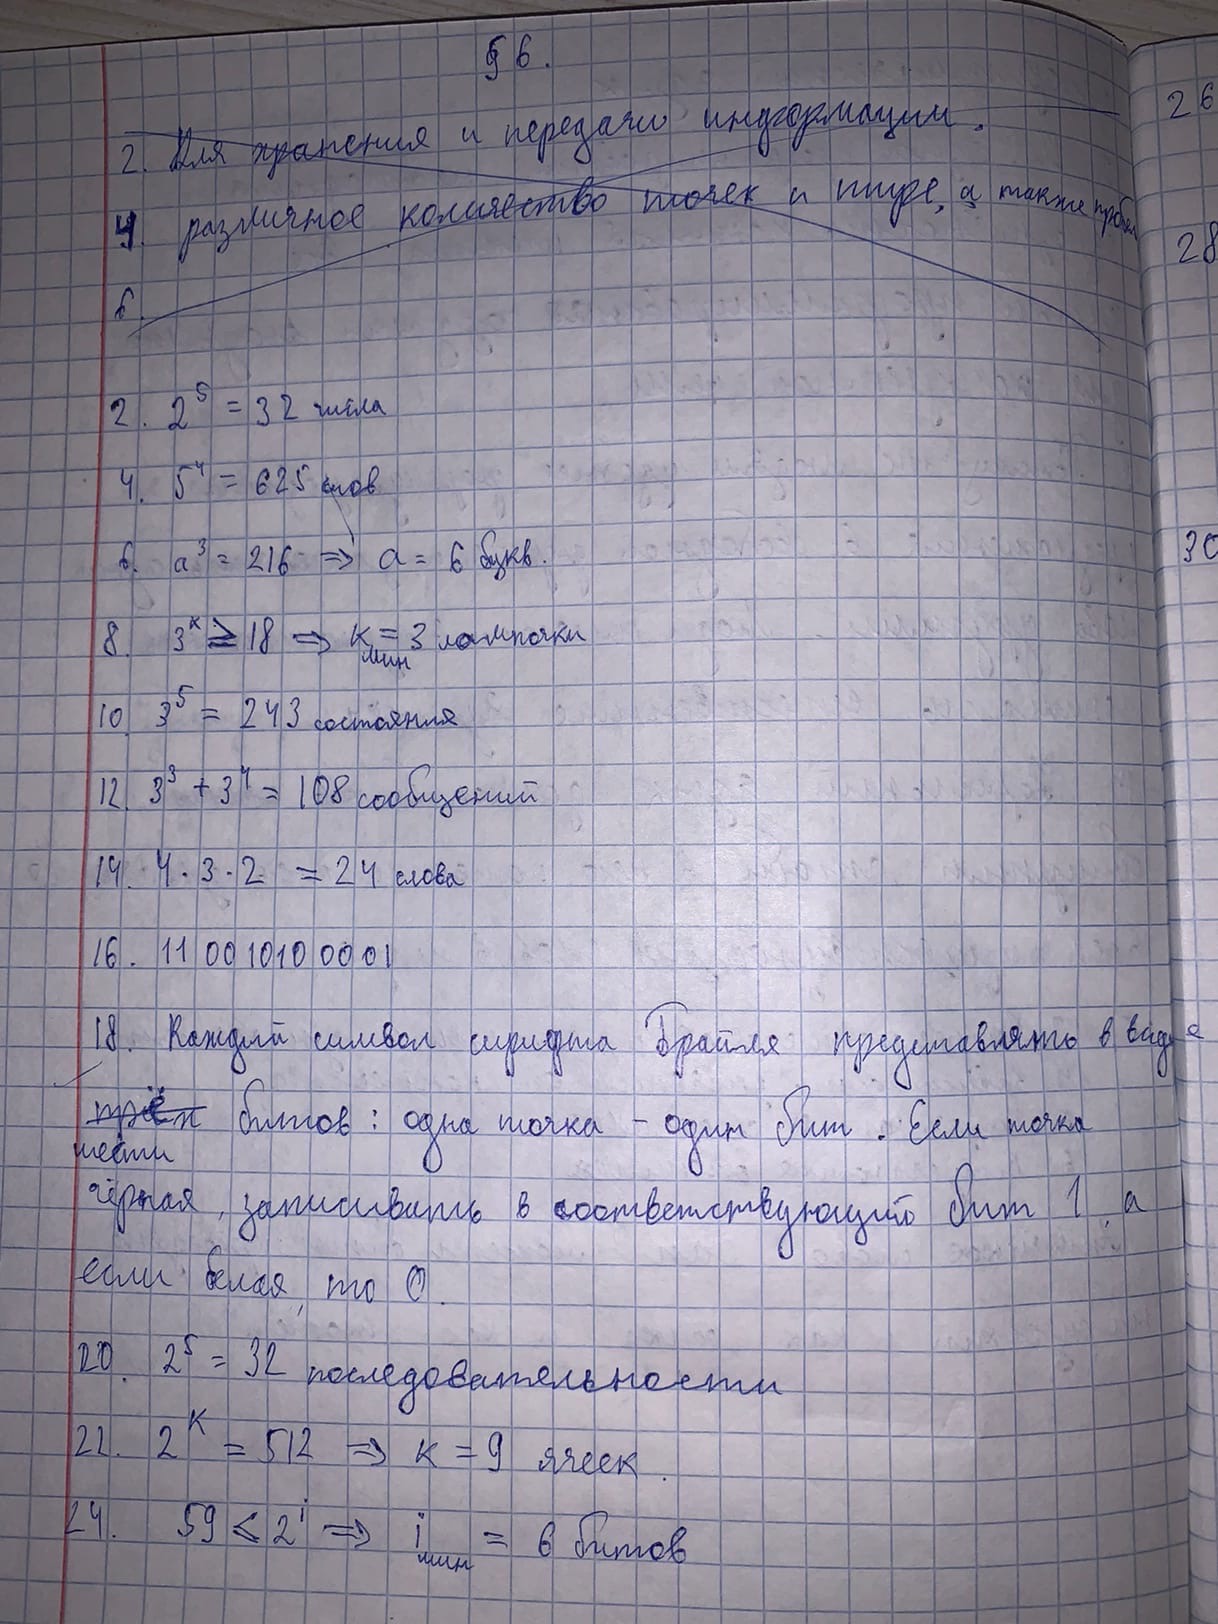 § 6.
2. Для хранения и передачи информации.
4. различное количество точек и тире, а также пробел
6.
2. 2⁵ = 32 числа
4. 5⁴ = 625 слов
6. a³ = 216 ⇒ a = 6 букв.
8. 3ᵏ ≥ 18 ⇒ k мин = 3 лампочки
10. 3⁵ = 243 состояния
12. 3³ + 3⁴ = 108 сообщений
14. 4 · 3 · 2 = 24 слова
16. 11 00 1010 0001
18. Каждый символ шрифта Брайля представлять в виде
трёх битов: одна точка – один бит. Если точка
шести
чёрная, записывать в соответствующий бит 1, а
если белая, то 0.
20. 2⁵ = 32 последовательности
22. 2ᴷ = 512 ⇒ к = 9 ячеек.
24. 59 ≤ 2ⁱ ⇒ i мин = 6 битов
26
28
30